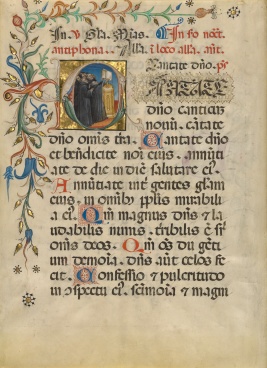 In v̊ Bla. Mias. In iij noct.
antiphona. Alla. i loco alla. añt.
Cantate dño. ps̄
CANTATE
dño canticũ
novũ. cãtate
dño omnis tr̃a. Cantate dño
et benedicite noi eius. annũtiate
de die in diẽ salutare ei⁹.
Annũtiate int̃ gentes gl̃am
eius. in omibꝫ pplis mirabilia
ei⁹. Qm̃ magnus dñs & laudabilis
nimis. tribilis ẽ sr̃
omnis deos. Qm̃ oẽs dii gẽtium
demoĩa. dñs aũt celos fecit.
Confessio & pulcritudo
in ɔspectu ei⁹. sc̃imoĩa & magni